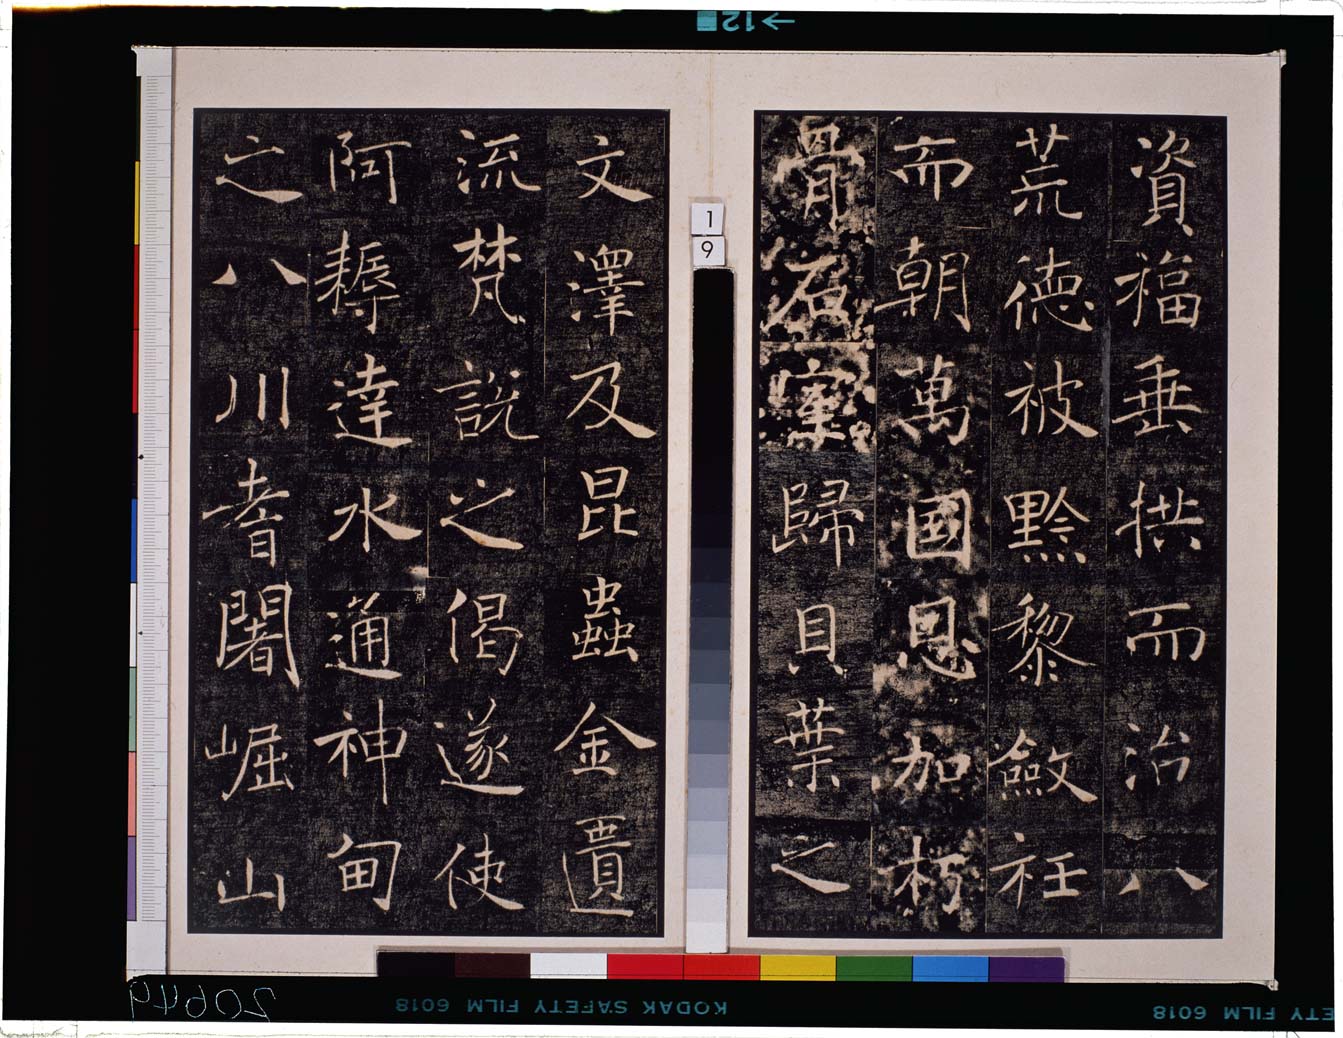 →12
資福垂拱而治八
荒德被黔黎斂衽
而朝萬國恩加朽
骨石室歸貝葉之
1
9
文澤及昆蟲金匱
流梵說之偈遂使
阿耨達水通神甸
之八川耆闍崛山
20649
KODAK SAFETY FILM 6018
ETY FILM 6018